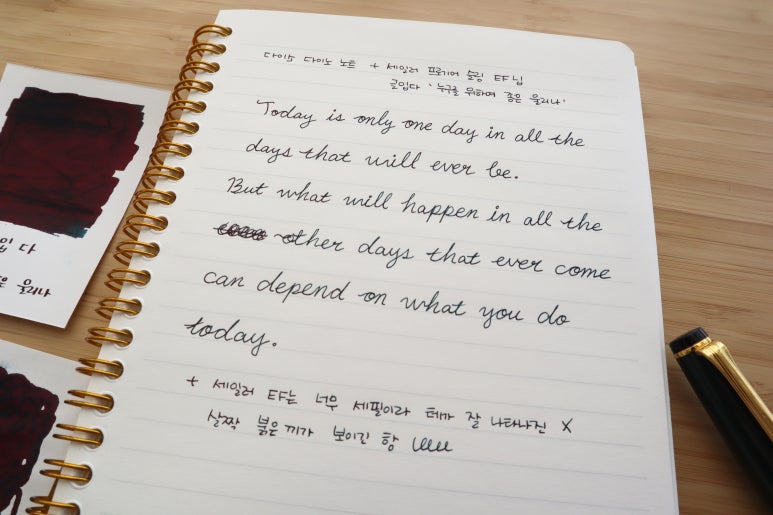 다이소 다이노 노트 + 세일러 프로기어 슬림 EF닙
글입다 '누구를 위하여 종은 울리나'
Today is only one day in all the
days that will ever be.
But what will happen in all the
other days that ever come
can depend on what you do
today.
+ 세일러 EF는 너무 세필이라 테가 잘 나타나진 X
살짝 붉은 끼가 보이긴 함
입 다
은 울리나